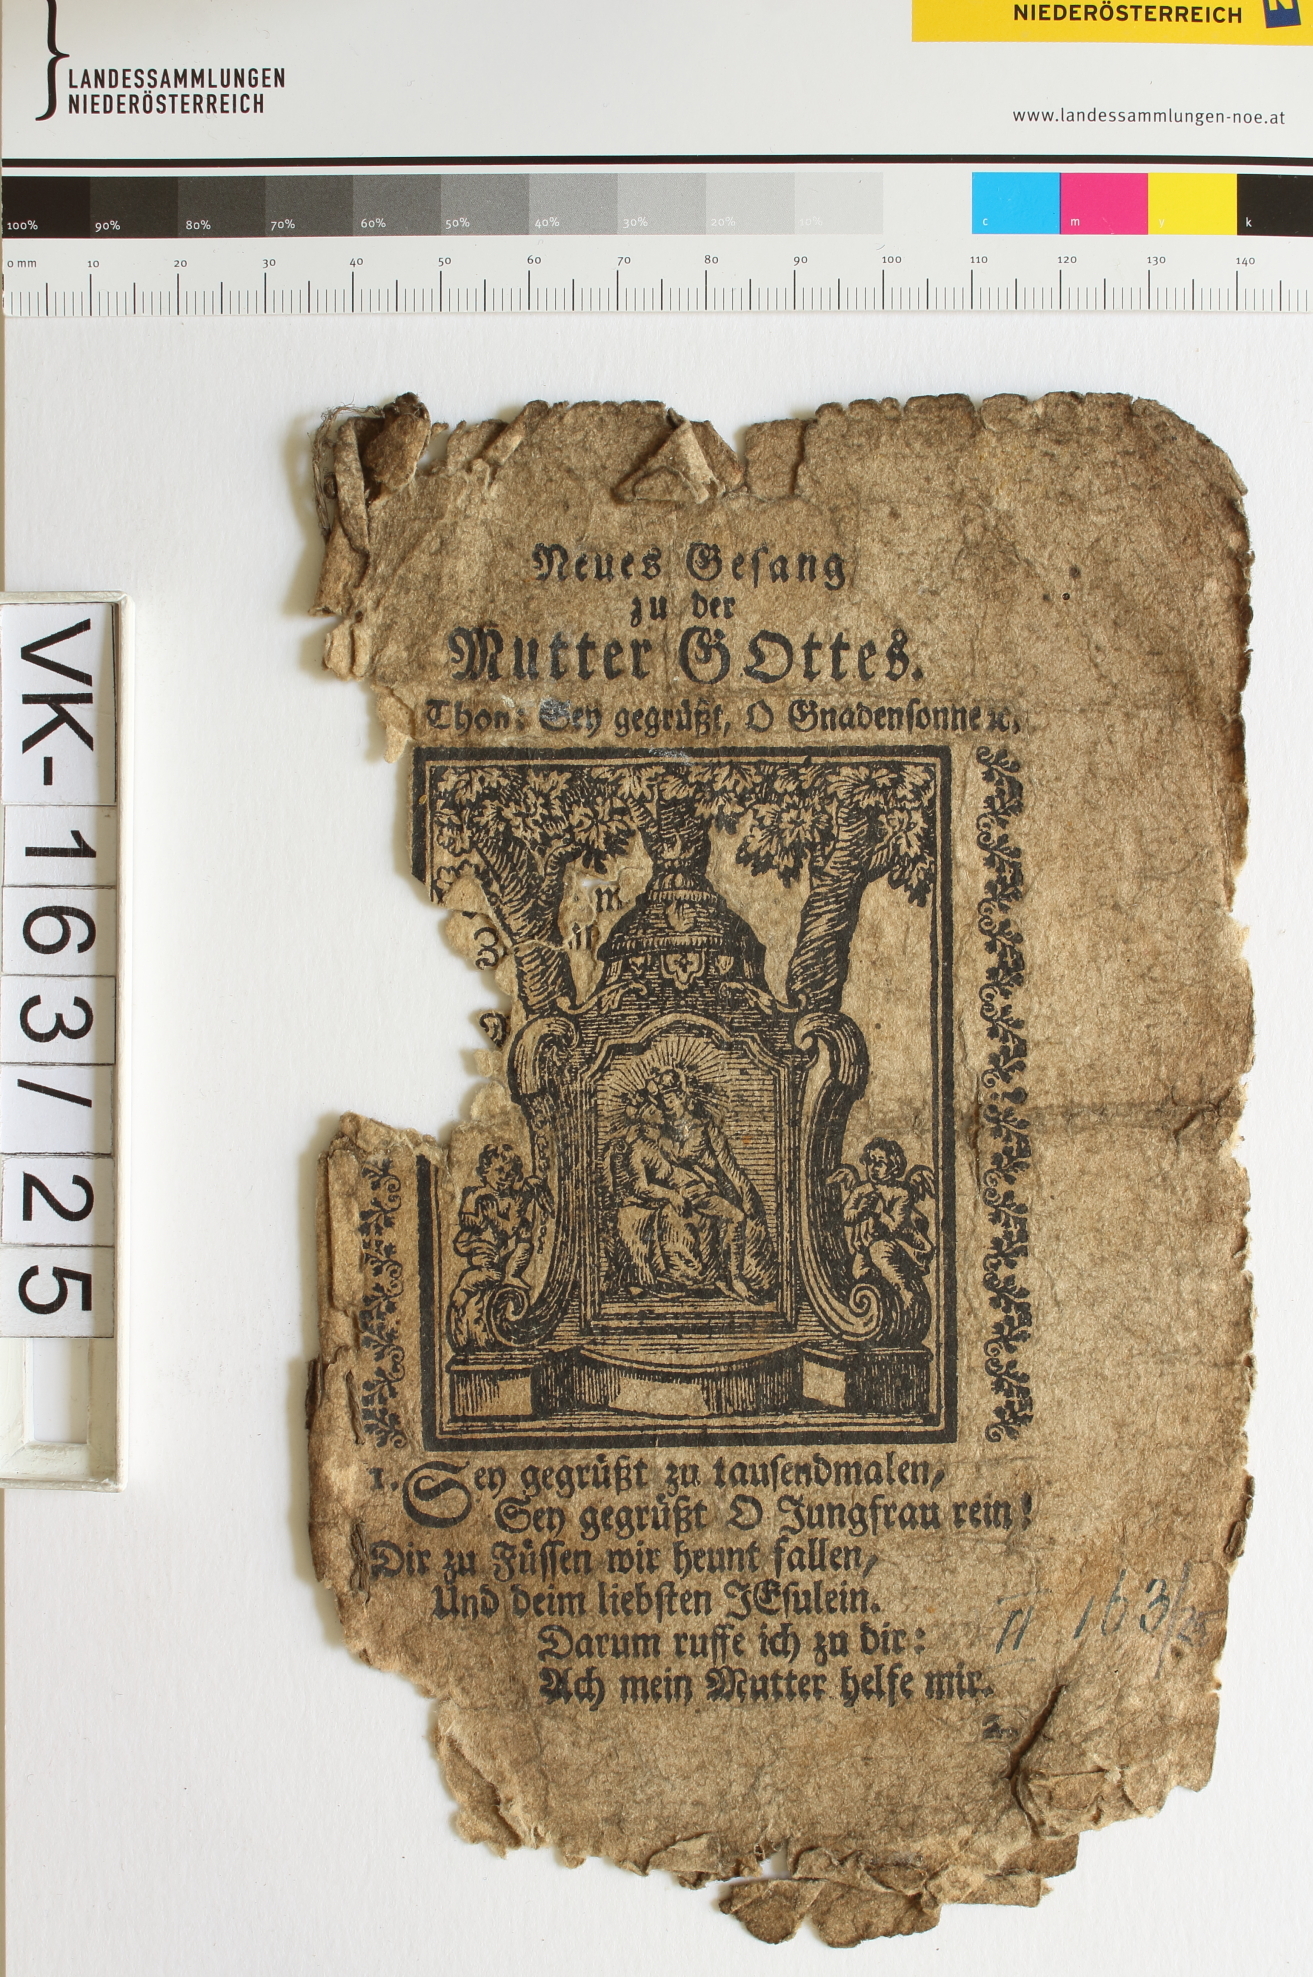 NIEDERÖSTERREICH
LANDESSAMMLUNGEN
NIEDERÖSTERREICH
www.landessammlungen-noe.at
100% 90% 80% 70% 60% 50% 40% 30% 20% 10% c m y k
0 mm 10 20 30 40 50 60 70 80 90 100 110 120 130 140
VK-163/25
Neues Gesang
zu der
Mutter GOttes.
Thon: Sey gegrüßt, O Gnadensonne ꝛc.
1. Sey gegrüßt zu tausendmalen,
Sey gegrüßt O Jungfrau rein!
Dir zu Füssen wir heunt fallen,
Und deim liebsten JEsulein.
Darum ruffe ich zu dir:
Ach mein Mutter helfe mir.
2.
II 163/25